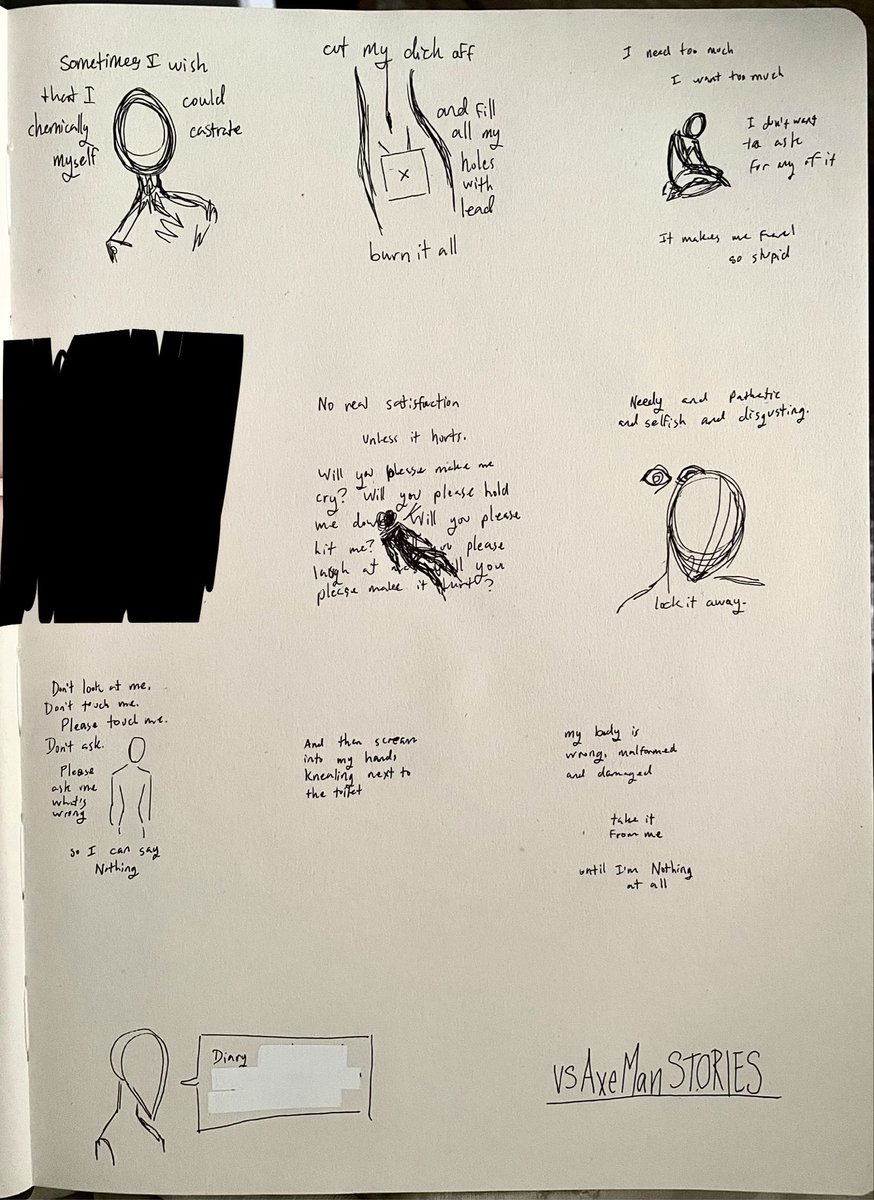 Sometimes I wish
that I could
chemically castrate
myself
cut my dick off
and fill
all my
holes
with
lead
burn it all
I need too much
I want too much
I don't want
to ask
for any of it
It makes me feel
so stupid
No real satisfaction
unless it hurts.
Will you please make me
cry? Will you please hold
me down? Will you please
hit me? you please
laugh at you
please make it hurt?
Needy and pathetic
and selfish and disgusting.
lock it away.
Don't look at me.
Don't touch me.
Please touch me.
Don't ask.
Please
ask me
what's
wrong
so I can say
Nothing
And then scream
into my hands
Knealing next to
the toilet
my body is
wrong, malformed
and damaged
take it
from me
until I'm Nothing
at all
Diary
vsAxeManSTORIES